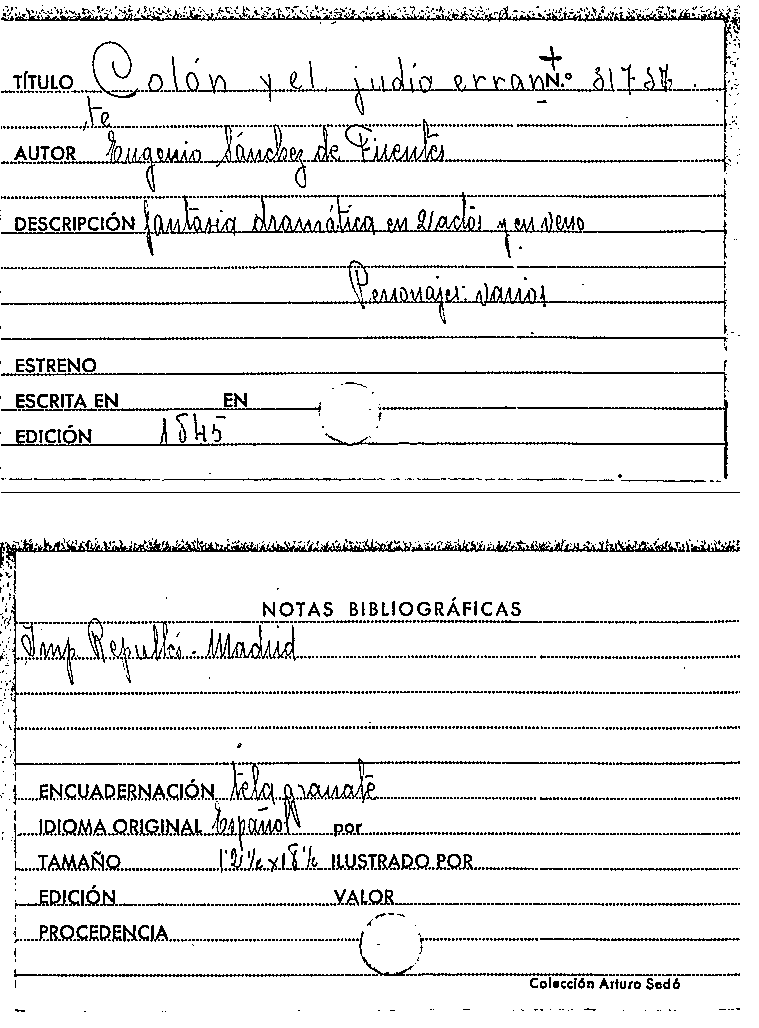 TÍTULO Colón y el judío erran N.º 31737.
te
AUTOR Eugenio Sánchez de Fuentes
DESCRIPCIÓN fantasia dramática en 2 actos y en verso
Personajes: varios
ESTRENO
ESCRITA EN EN
EDICIÓN 1845
NOTAS BIBLIOGRÁFICAS
Imp Repullés - Madrid
ENCUADERNACIÓN tela granate
IDIOMA ORIGINAL Español por
TAMAÑO 12½ x 18½ ILUSTRADO POR
EDICIÓN VALOR
PROCEDENCIA
Colección Arturo Sedó